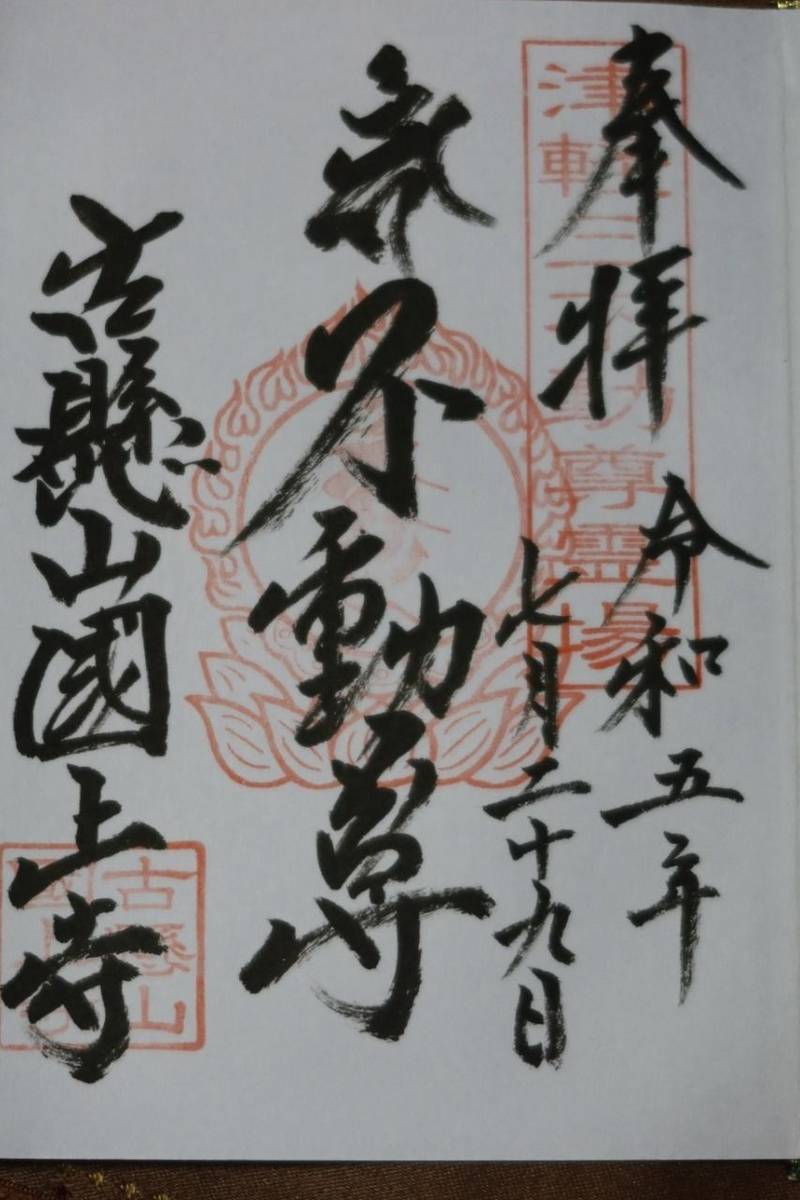 奉拝
令和五年
七月二十九日
不動尊
古懸山國上寺
津軽三不動尊霊場
古懸山
國上寺